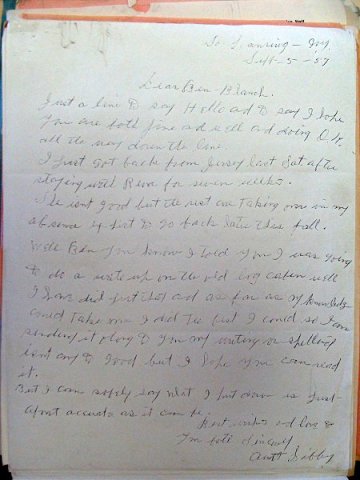 Sept - 5 - 57
Dear Ben - Blanch.
Just a line to say Hello and to say I hope
you are both fine and well and doing O.K.
all the way down the line.
I just got back from Jersey last Sat after
staying with Rena for seven weeks.
She isnt good but the rest are taking over in my
absence I but to go back later this fall.
Well Ben you know I told you I was going
to do a write up on the old log cabin well
I have did just that and as far as my knowledge
could take me I did the best I could so I am
sending it along to you my writing or spelling
isnt any to good but I hope you can read
it.
But I can safely say what I put down is just
about accurate as it can be.
Best wishes and love to
you both sincerely
Aunt Libby